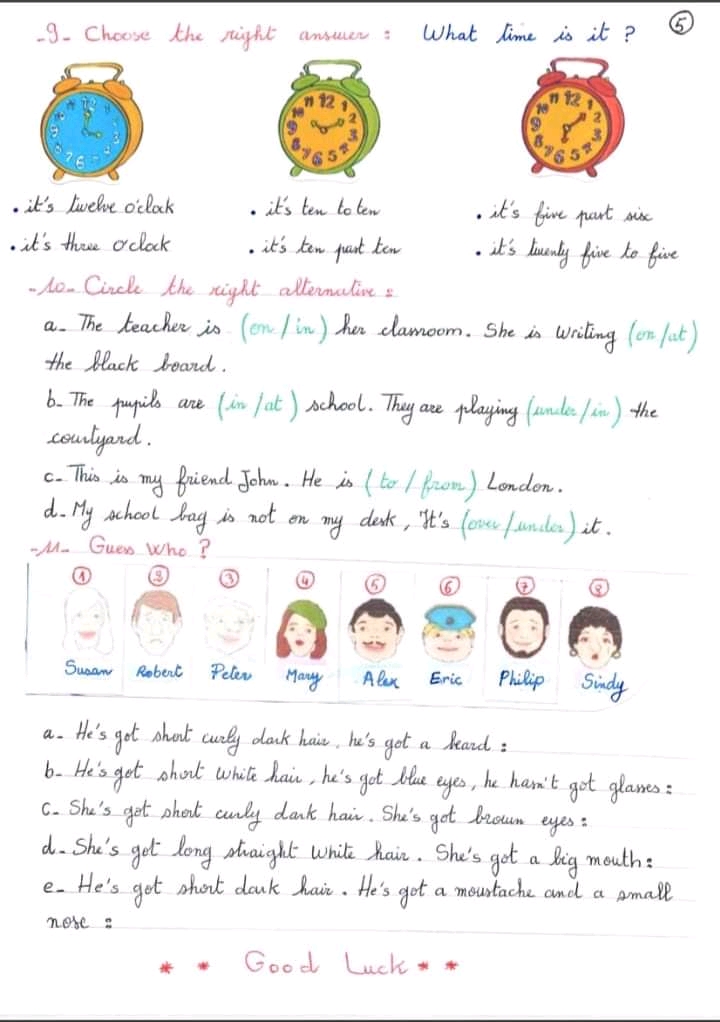 -9- Choose the right answer : What time is it ? 5
12
11 12 1 2 3 5 6 7 8 9 10
11 12 1 2 3 5 6 7 8 9 10
• it's twelve o'clock • it's ten to ten • it's five past six
• it's three o'clock • it's ten past ten • it's twenty five to five
-10- Circle the right alternative :
a- The teacher is (on / in) her classroom. She is writing (on /at)
the black board.
b- The pupils are (in /at) school. They are playing (under/in) the
courtyard.
c- This is my friend John. He is (to / from) London.
d- My school bag is not on my desk, It's (over/under) it.
-11- Guess Who ?
1 2 3 4 5 6 7 8
Susan Robert Peter Mary Alex Eric Philip Sindy
a- He's got short curly dark hair, he's got a beard :
b- He's got short white hair, he's got blue eyes, he hasn't got glasses :
c- She's got short curly dark hair. She's got brown eyes :
d- She's got long straight white hair. She's got a big mouth :
e- He's got short dark hair. He's got a moustache and a small
nose :
* * Good Luck * *